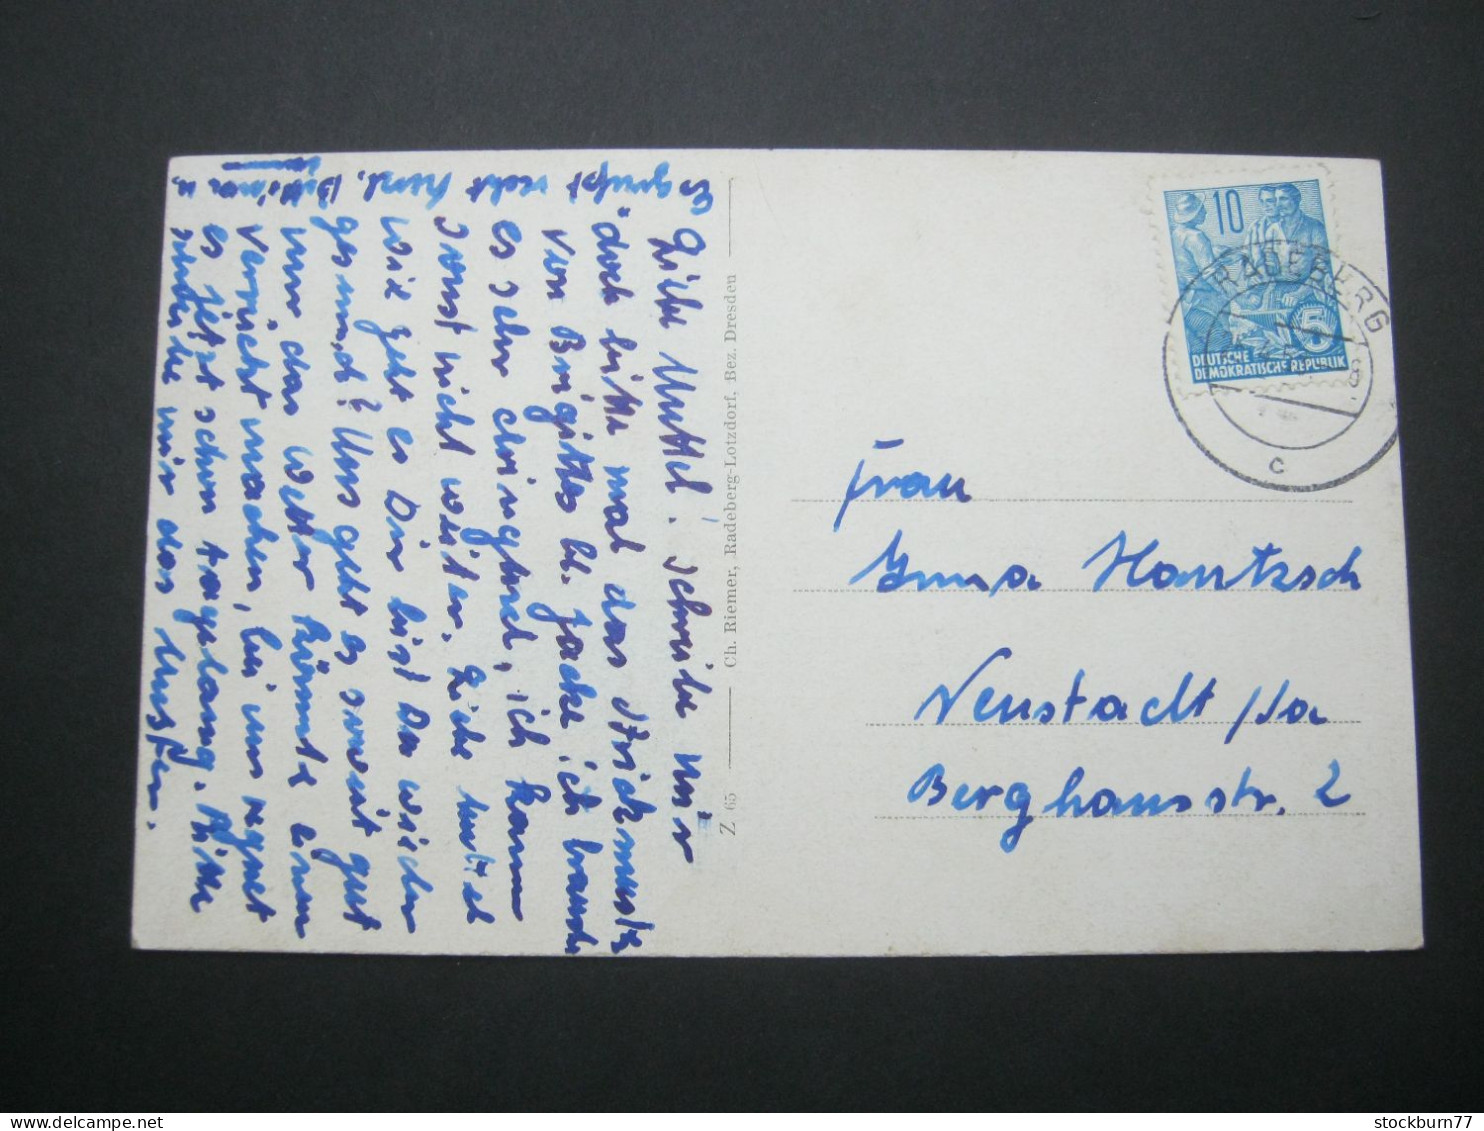 Liebe Mutti! schreibe mir
doch bitte mal das Strickmuster
von Brigittes bl. Jacke ich brauch
es sehr dringend, ich kann
sonst nicht weiter. Liebe Mutti
wie geht es Dir bist Du wieder
gesund? Uns geht es soweit gut
nur das Wetter könnte einen
verrückt machen, bei uns regnet
es jetzt schon tagelang. Bitte
sende mir das Muster.
Es grüßt recht herzl.
Z 65
Ch. Riemer, Radeberg-Lotzdorf, Bez. Dresden
10
DEUTSCHE
DEMOKRATISCHE REPUBLIK
5
RADEBERG
c
Frau
Hantzsch
Neustadt /Sa
Berghausstr. 2
stockburn77